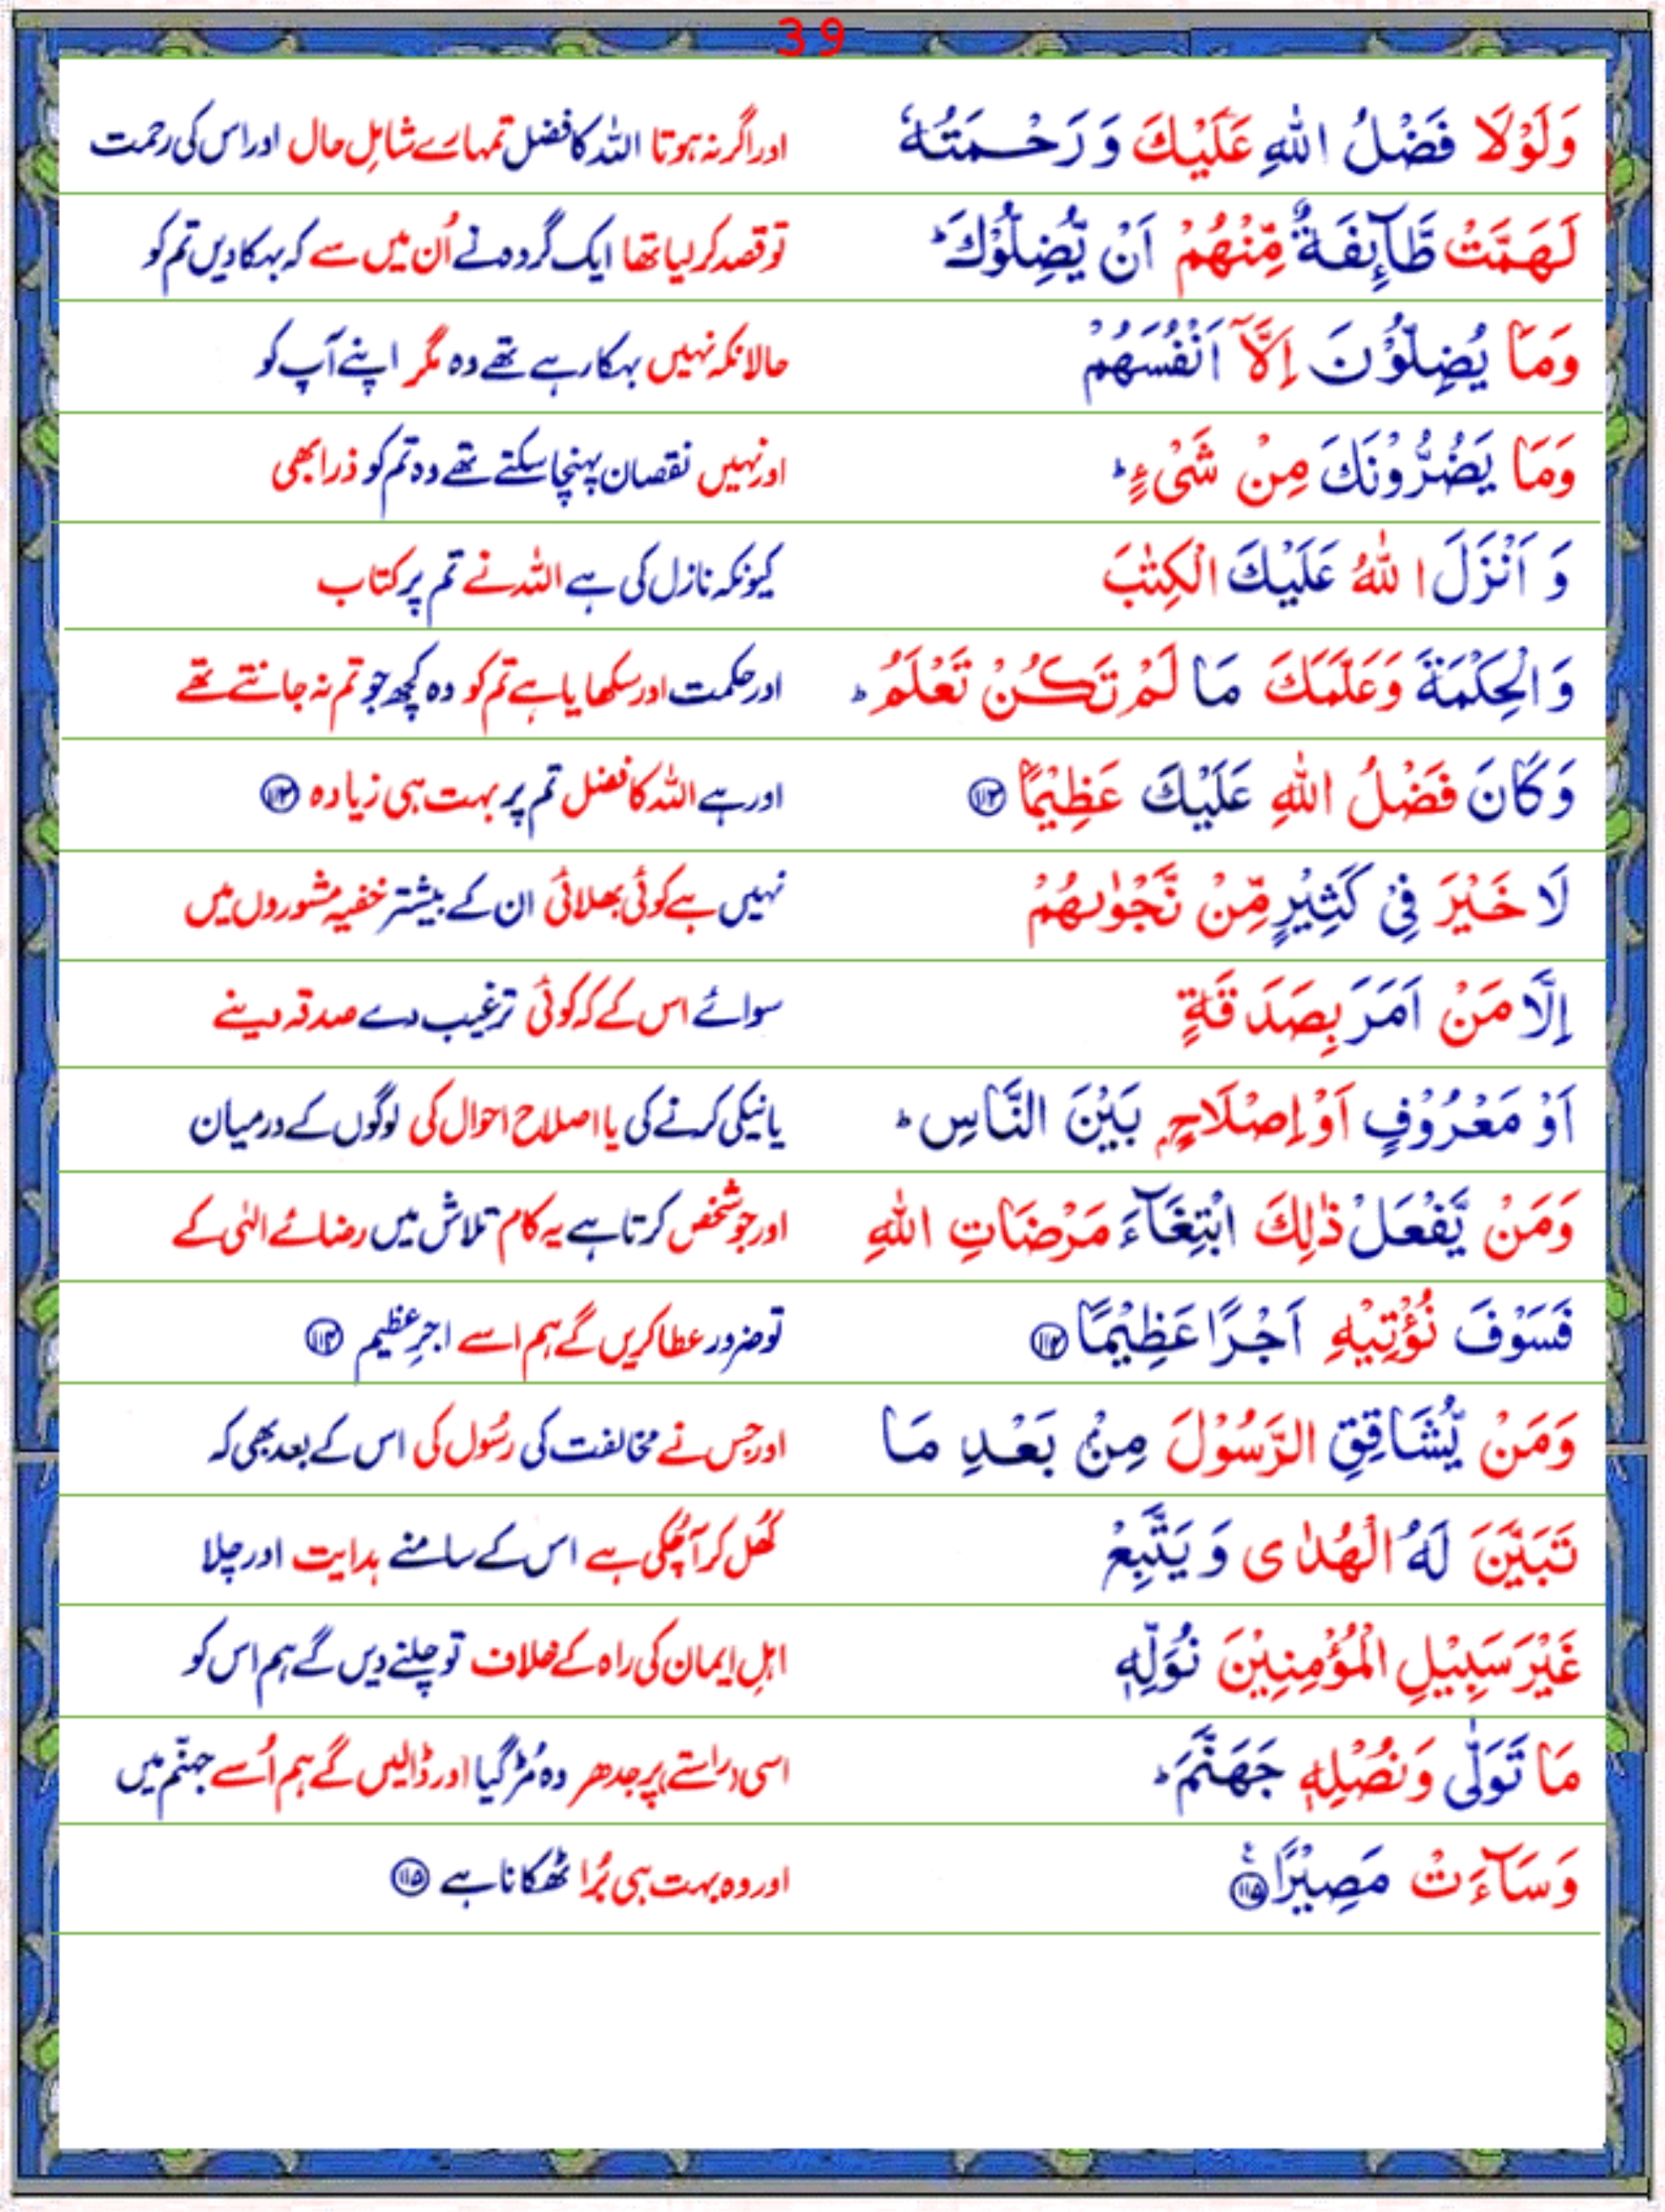 39
وَلَوْلَا فَضْلُ اللّٰهِ عَلَيْكَ وَ رَحْمَتُهٗ اور اگر نہ ہوتا اللہ کا فضل تمہارے شاملِ حال اور اس کی رحمت
لَهَمَّتْ طَّآئِفَةٌ مِّنْهُمْ اَنْ يُّضِلُّوْكَ ؕ تو قصد کر لیا تھا ایک گروہ نے اُن میں سے کہ بہکا دیں تم کو
وَمَا يُضِلُّوْنَ اِلَّاۤ اَنْفُسَهُمْ حالانکہ نہیں بہکا رہے تھے وہ مگر اپنے آپ کو
وَمَا يَضُرُّوْنَكَ مِنْ شَىْءٍ ؕ اور نہیں نقصان پہنچا سکتے تھے وہ تم کو ذرا بھی
وَ اَنْزَلَ اللّٰهُ عَلَيْكَ الْكِتٰبَ کیونکہ نازل کی ہے اللہ نے تم پر کتاب
وَ الْحِكْمَةَ وَعَلَّمَكَ مَا لَمْ تَكُنْ تَعْلَمُ ؕ اور حکمت اور سکھایا ہے تم کو وہ کچھ جو تم نہ جانتے تھے
وَكَانَ فَضْلُ اللّٰهِ عَلَيْكَ عَظِيْمًا ۱۱۳ اور ہے اللہ کا فضل تم پر بہت ہی زیادہ ۱۱۳
لَا خَيْرَ فِىْ كَثِيْرٍ مِّنْ نَّجْوٰىهُمْ نہیں ہے کوئی بھلائی ان کے بیشتر خفیہ مشوروں میں
اِلَّا مَنْ اَمَرَ بِصَدَقَةٍ سوائے اس کے کہ کوئی ترغیب دے صدقہ دینے
اَوْ مَعْرُوْفٍ اَوْ اِصْلَاحٍۭ بَيْنَ النَّاسِ ؕ یا نیکی کرنے کی یا اصلاحِ احوال کی لوگوں کے درمیان
وَمَنْ يَّفْعَلْ ذٰلِكَ ابْتِغَآءَ مَرْضَاتِ اللّٰهِ اور جو شخص کرتا ہے یہ کام تلاش میں رضائے الٰہی کے
فَسَوْفَ نُؤْتِيْهِ اَجْرًا عَظِيْمًا ۱۱۴ تو ضرور عطا کریں گے ہم اسے اجرِ عظیم ۱۱۴
وَمَنْ يُّشَاقِقِ الرَّسُوْلَ مِنْۢ بَعْدِ مَا اور جس نے مخالفت کی رسُول کی اس کے بعد بھی کہ
تَبَيَّنَ لَهُ الْهُدٰى وَ يَتَّبِعْ کُھل کر آچُکی ہے اس کے سامنے ہدایت اور چلا
غَيْرَ سَبِيْلِ الْمُؤْمِنِيْنَ نُوَلِّهٖ اہلِ ایمان کی راہ کے خلاف تو چلنے دیں گے ہم اس کو
مَا تَوَلّٰى وَنُصْلِهٖ جَهَنَّمَ ؕ اسی راستے پر جدھر وہ مُڑ گیا اور ڈالیں گے ہم اُسے جہنّم میں
وَسَآءَتْ مَصِيْرًا ۱۱۵ اور وہ بہت ہی بُرا ٹھکانا ہے ۱۱۵